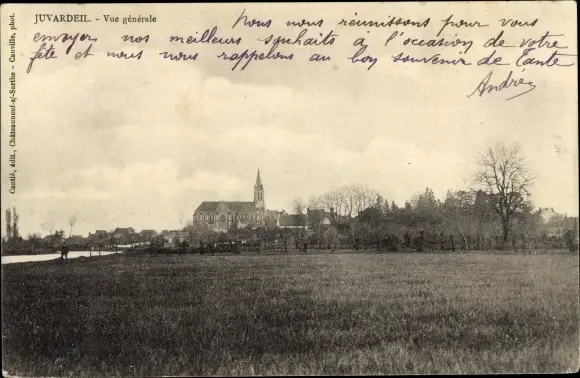 JUVARDEIL. - Vue générale
Nous nous réunissons pour vous
envoyer nos meilleurs souhaits à l'occasion de votre
fête et nous nous rappelons au bon souvenir de Tante
Andrée
Cantié, édit., Châteauneuf-s/-Sarthe - Canville, phot.